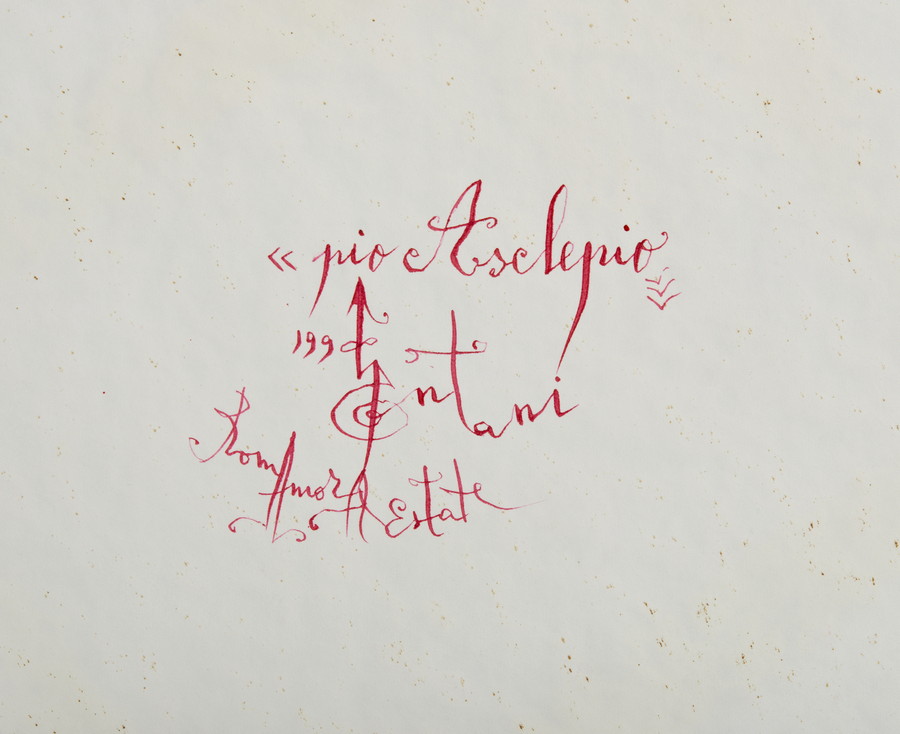 « pio Asclepio »
1998
Ontani
RomAmorA Estate